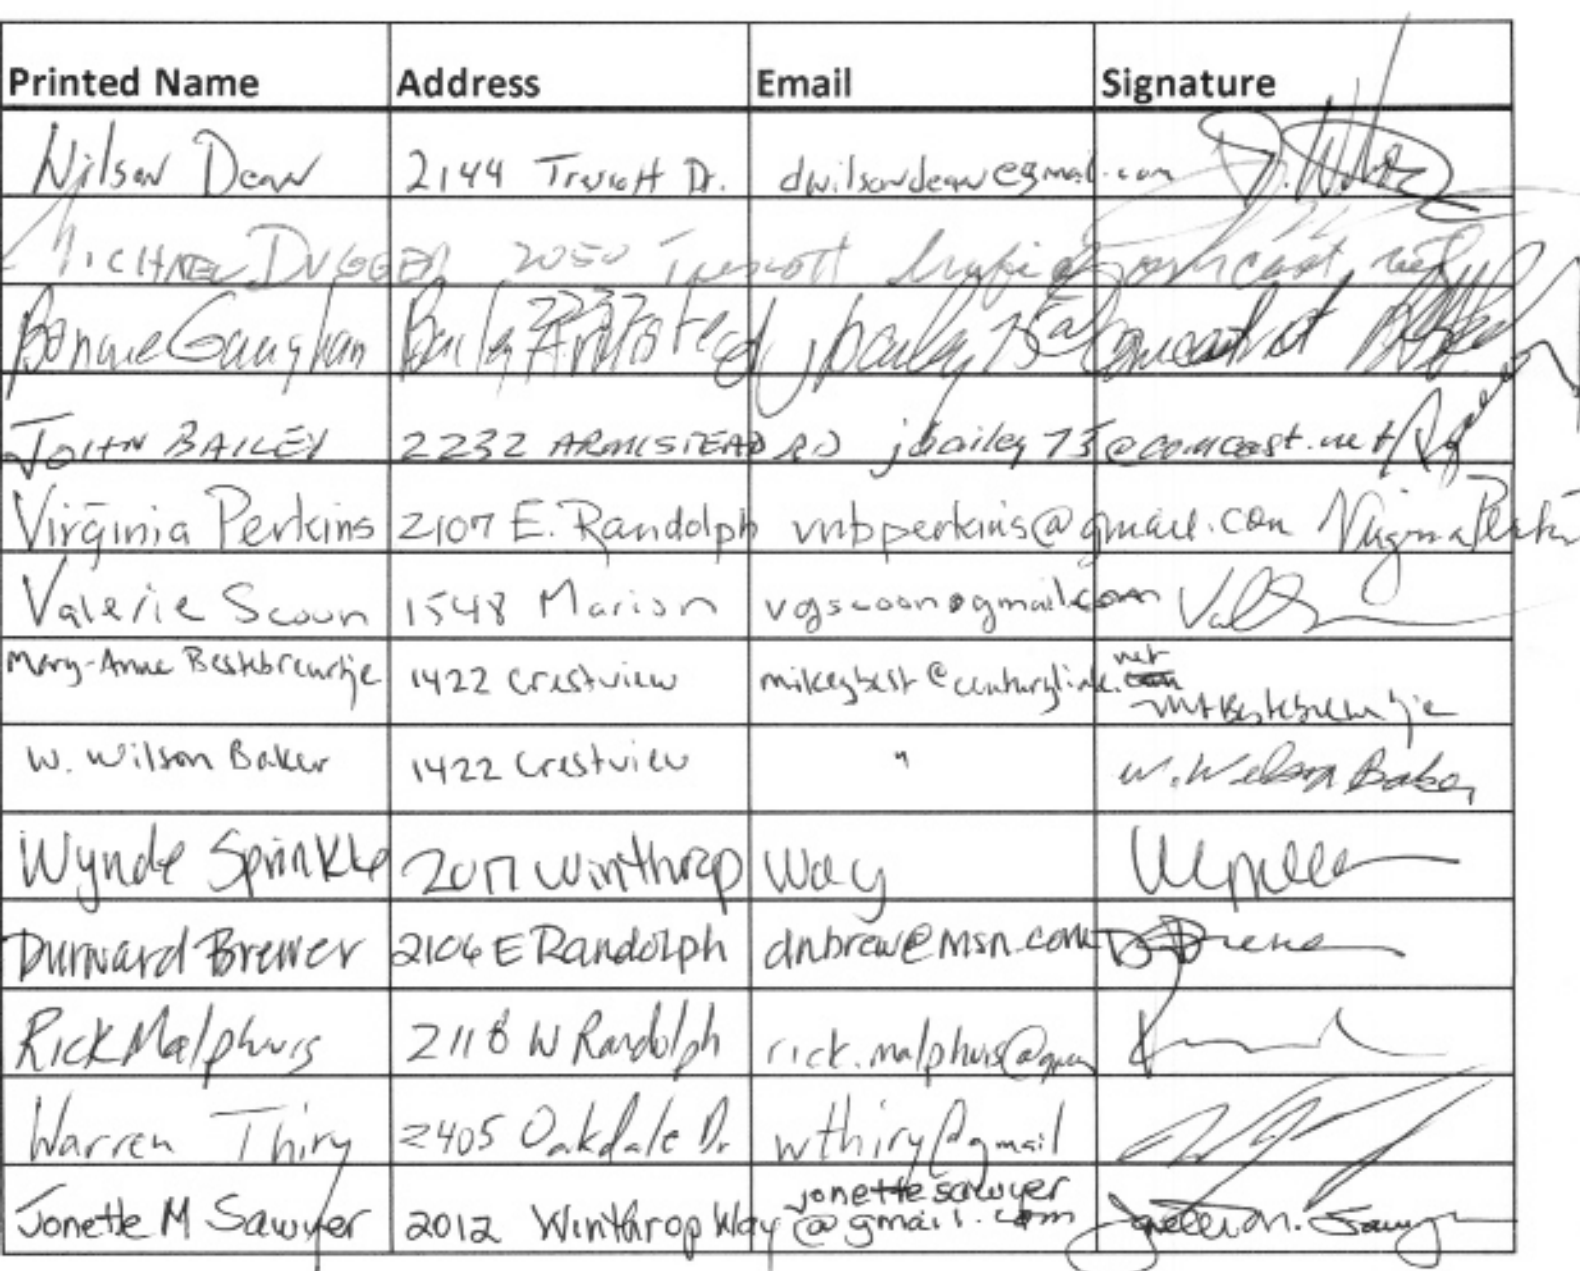 Printed Name Address Email Signature
Wilson Dean 2144 Trescott Dr. dwilsondean@gmail.com
MICHAEL DUGGER 2050 Trescott
Bonnie Gaughan 2232 jbailey75@comcast.net
JOHN BAILEY 2232 ARMISTEAD RD jbailey75@comcast.net
Virginia Perkins 2107 E. Randolph vnbperkins@gmail.com Virginia Perkins
Valerie Scoon 1548 Marion vgscoon@gmail.com
Mary-Anne Bestebreurtje 1422 Crestview mikeybest@centurylink.net
W. Wilson Baker 1422 Crestview " W. Wilson Baker
Wynde Sprinkle 2017 Winthrop Way
Durward Brewer 2106 E Randolph dnbrew@msn.com
Rick Malphurs 2118 W Randolph
Warren Thiry 2405 Oakdale Dr. wthiry@gmail
Jonette M Sawyer 2012 Winthrop Way jonettesawyer
@gmail.com